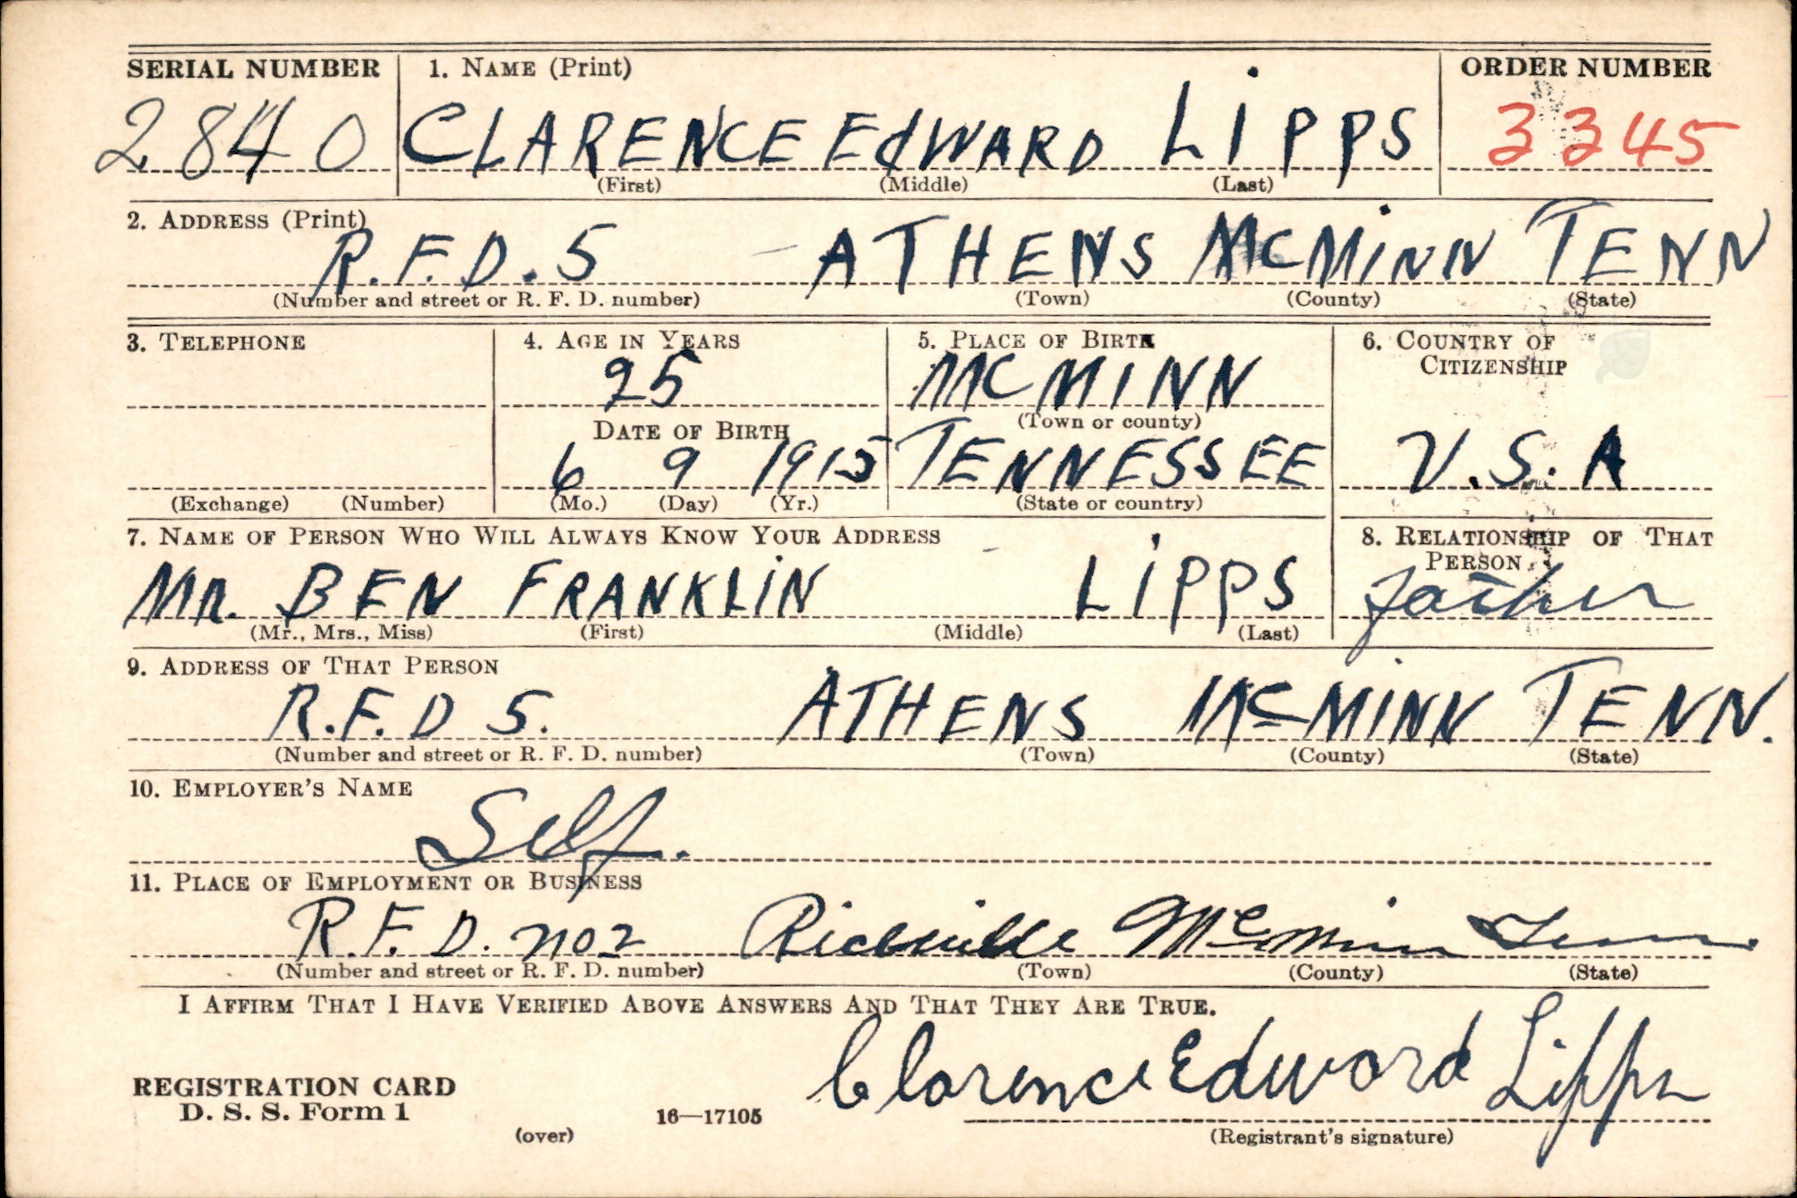 SERIAL NUMBER 1. NAME (Print) ORDER NUMBER
2840 CLARENCE EdWARD LiPPS 3345
(First) (Middle) (Last)
2. ADDRESS (Print)
R.F.D. 5 ATHENS McMiNN TENN
(Number and street or R. F. D. number) (Town) (County) (State)
3. TELEPHONE 4. AGE IN YEARS 5. PLACE OF BIRTH 6. COUNTRY OF CITIZENSHIP
25 MCMINN
(Town or county)
DATE OF BIRTH
6 9 1915 TENNESSEE U.S.A
(Exchange) (Number) (Mo.) (Day) (Yr.) (State or country)
7. NAME OF PERSON WHO WILL ALWAYS KNOW YOUR ADDRESS 8. RELATIONSHIP OF THAT PERSON
MR. BEN FRANKLiN LiPPS father
(Mr., Mrs., Miss) (First) (Middle) (Last)
9. ADDRESS OF THAT PERSON
R.F.D 5. ATHENS McMINN TENN.
(Number and street or R. F. D. number) (Town) (County) (State)
10. EMPLOYER'S NAME
Self.
11. PLACE OF EMPLOYMENT OR BUSINESS
R.F.D. no 2 Riceville McMinn Tenn
(Number and street or R. F. D. number) (Town) (County) (State)
I AFFIRM THAT I HAVE VERIFIED ABOVE ANSWERS AND THAT THEY ARE TRUE.
Clarence Edward Lipps
REGISTRATION CARD
D. S. S. Form 1 16—17105
(over) (Registrant's signature)